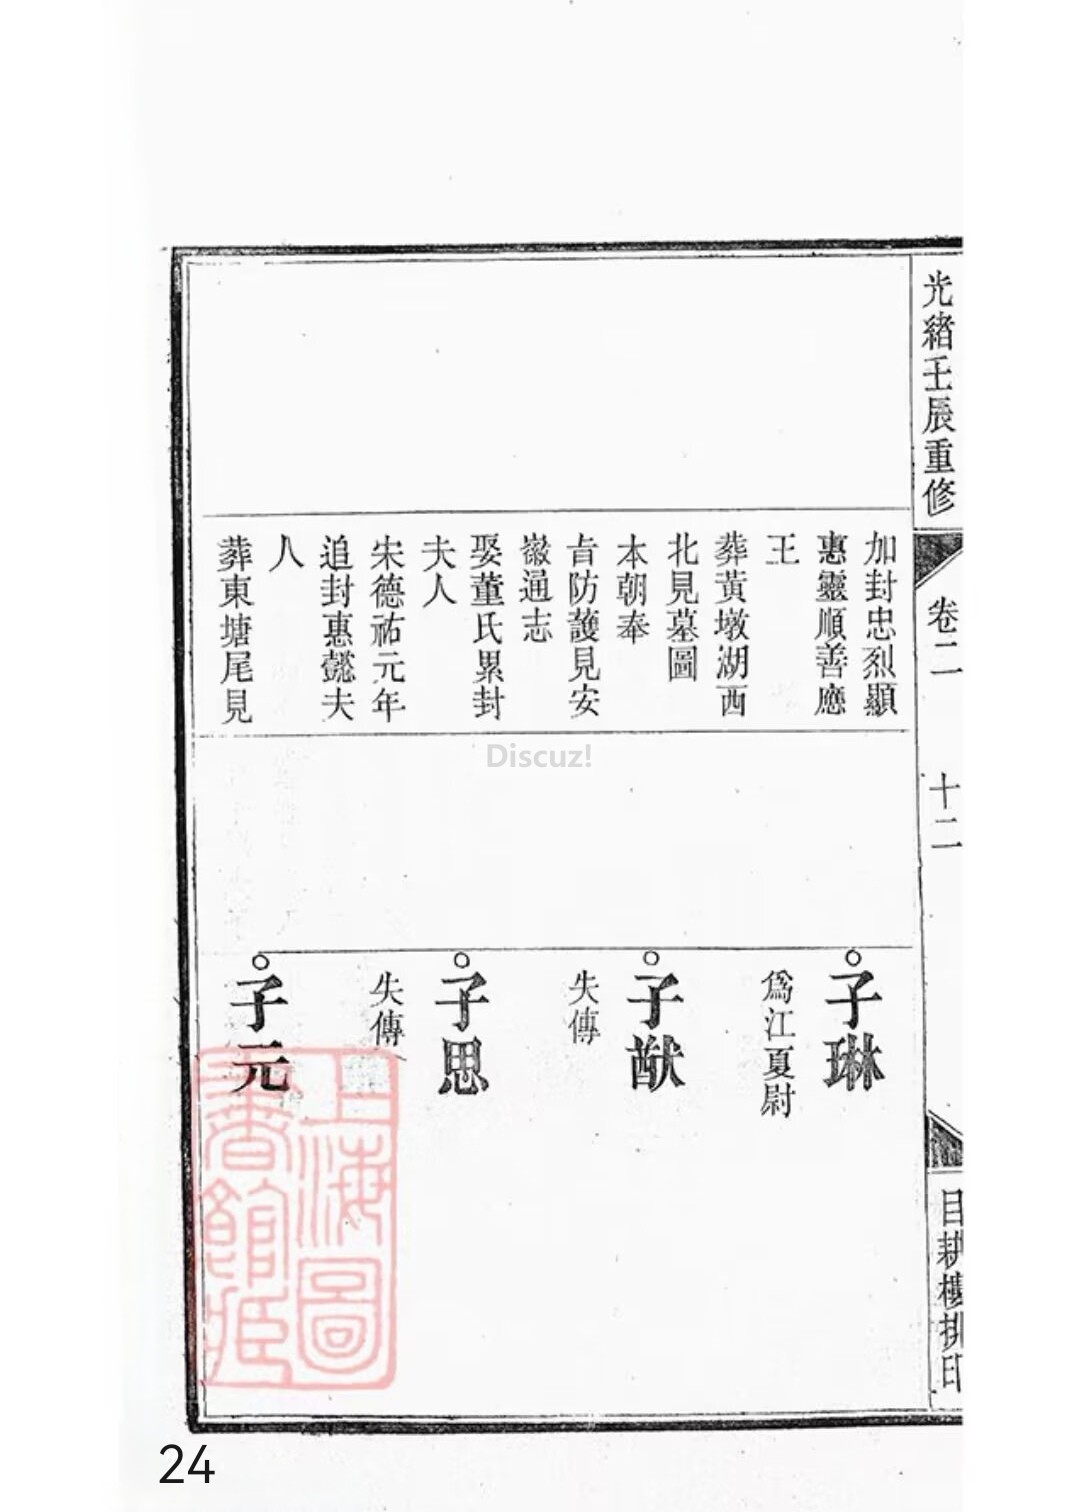 光緒壬辰重修
卷二
十二
目耕樓排印
加封忠烈顯
惠靈順善應
王
葬黃墩湖西
北見墓圖
本朝奉
旨防護見安
徽通志
娶董氏累封
夫人
宋德祐元年
追封惠懿夫
人
葬東塘尾見
子琳
爲江夏尉
子猷
失傳
子思
失傳
子元
上海圖
書館藏
Discuz!
24